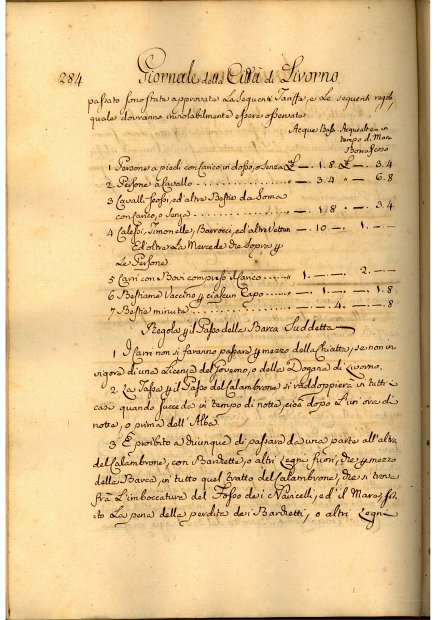 284 Giornale della Città di Livorno
passato sono state approvate La seguente Tariffa, e Le seguenti regole,
quale dovranno inviolabilmente essere osservate
Acque Basse Acque alte in
tempo di Mare
Burrascoso
1 Persone a piedi con Carico in dosso, o senza £ — 1. 8 £ — 3. 4
2 Persone à Cavallo — 3. 4 " — 6. 8
3 Cavalli scossi, ed altre Bestie da Soma
con Carico, o senza — 1. 8 — 3. 4
4 Calessi, Timonelle, Barrocci, ed altre Vetture — 10 — 1. —
Ed oltre La Mercede di Sopra p
Le Persone
5 Carri con Bovi compreso il Carico " 1. — 2. —
6 Bestiame Vaccino p ciascun Capo " — 1. — — 1. 8
7 Bestie minute " — 4. — 1. 8
Regola p il Passo della Barca Suddetta
1 I Carri non si faranno passare p mezzo della Chiatta, se non in
vigore di una Licenza del Governo, o della Dogana di Livorno.
2. La Tassa p il Passo del Calambrone si raddoppierà in tutti i
casi quando succeda in tempo di notte, cioè dopo L'un'ora di
notte, o prima dell'Alba.
3 È proibito a chiunque di passare da una parte all'altra
del Calambrone, con Barchette, o altri Legni fuori, che p mezzo
della Barca, in tutto quel tratto del Calambrone, che si trova
frà L'imboccatura del Fosso dei Navicelli, ed il Mare, sot
to La pena della perdita dei Barchetti, o altri Legni